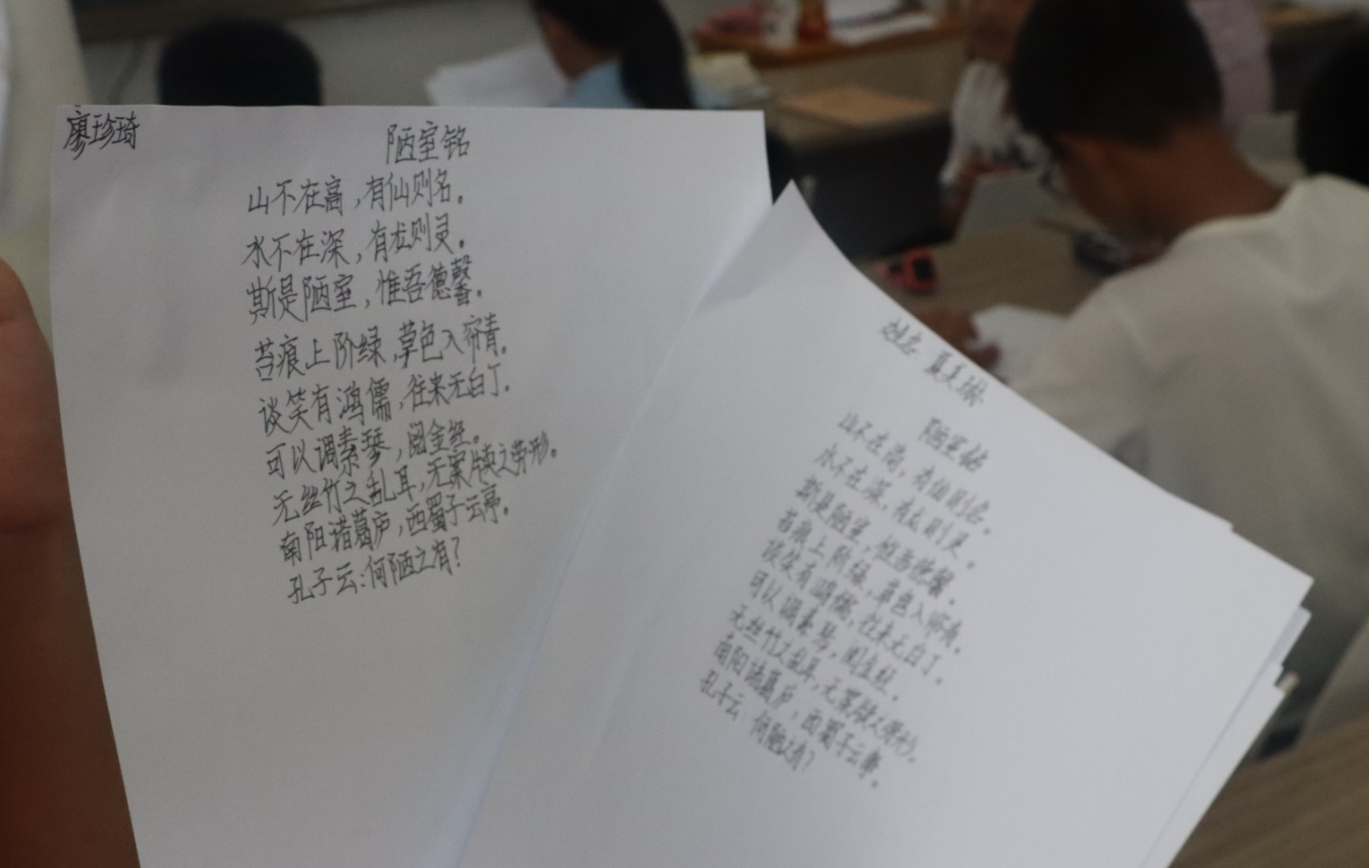 廖珍琦
陋室铭
山不在高,有仙则名。
水不在深,有龙则灵。
斯是陋室,惟吾德馨。
苔痕上阶绿,草色入帘青。
谈笑有鸿儒,往来无白丁。
可以调素琴,阅金经。
无丝竹之乱耳,无案牍之劳形。
南阳诸葛庐,西蜀子云亭。
孔子云:何陋之有?
姓名 夏美琳
陋室铭
山不在高,有仙则名。
水不在深,有龙则灵。
斯是陋室,惟吾德馨。
苔痕上阶绿,草色入帘青。
谈笑有鸿儒,往来无白丁。
可以调素琴,阅金经。
无丝竹之乱耳,无案牍之劳形。
南阳诸葛庐,西蜀子云亭。
孔子云:何陋之有?